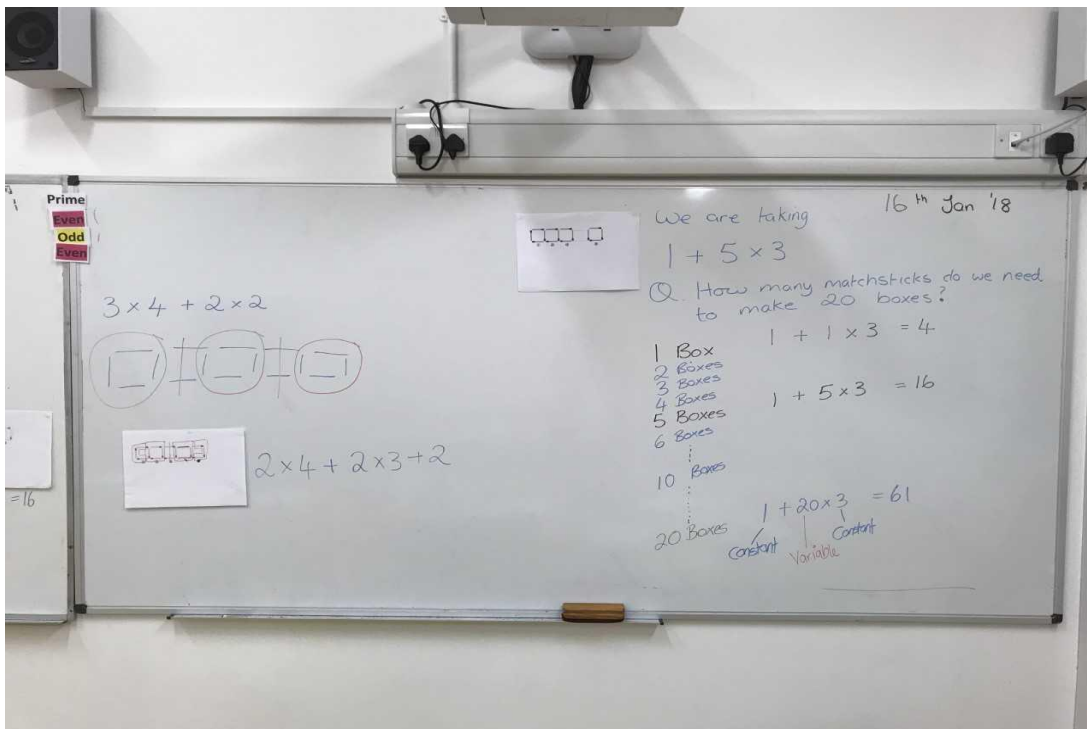 Prime
Even
Odd
Even
=16
3 × 4 + 2 × 2
2 × 4 + 2 × 3 + 2
16th Jan '18
We are taking
1 + 5 × 3
Q. How many matchsticks do we need
to make 20 boxes?
1 Box
1 + 1 × 3 = 4
2 Boxes
3 Boxes
4 Boxes
5 Boxes
1 + 5 × 3 = 16
6 Boxes
10 Boxes
20 Boxes
1 + 20 × 3 = 61
Constant
Variable
Constant